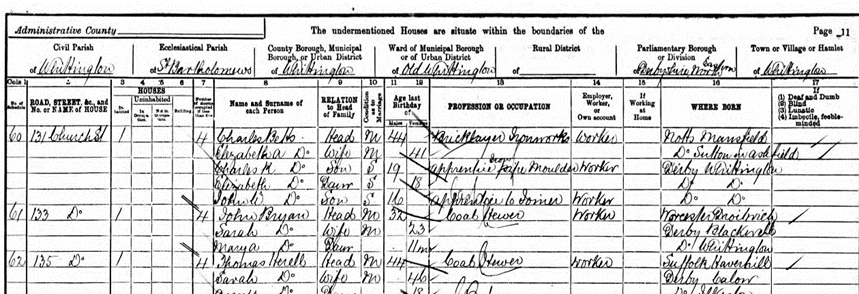 Administrative County
The undermentioned Houses are situate within the boundaries of the
Page 11
Civil Parish
of Whittington
Ecclesiastical Parish
of St Bartholomews
County Borough, Municipal Borough, or Urban District
of Whittington
Ward of Municipal Borough or of Urban District
of Old Whittington
Rural District
of
Parliamentary Borough or Division
of Derbyshire
Town or Village or Hamlet
of
1 2 3 4 5 6 7 8 9 10 11 12 13 14 15 16 17
ROAD, STREET, &c., and No. or NAME of HOUSE
HOUSES
Uninhabited
Building
Name and Surname of each Person
RELATION to Head of Family
Condition as to Marriage
Age last Birthday of
PROFESSION OR OCCUPATION
Employer, Worker, or Own account
If Working at Home
WHERE BORN
If (1) Deaf and Dumb (2) Blind (3) Lunatic (4) Imbecile, feeble-minded
60 131 Church St 1 4 Charles Betts Head M 44 Bricklayer Ironworks Worker Notts Mansfield
Elizabeth A Do Wife M 41 Do Sutton in Ashfield
Charles H Do Son S 19 Apprentice Iron Pipe Moulder Worker Derby Whittington
Elizabeth Do Daur S 18 Do Do
John W Do Son S 16 Apprentice to Joiner Worker Do Do
61 133 Do 1 4 John Bryan Head M 32 Coal Hewer Worker Worcester Droitwich
Sarah Do Wife M 23 Derby Blackwell
Mary A Do Daur 11m Do Whittington
62 135 Do 1 4 Thomas Head M 44 Coal Hewer Worker Suffolk Haverhill
Sarah Do Wife M 46 Derby Calow
18